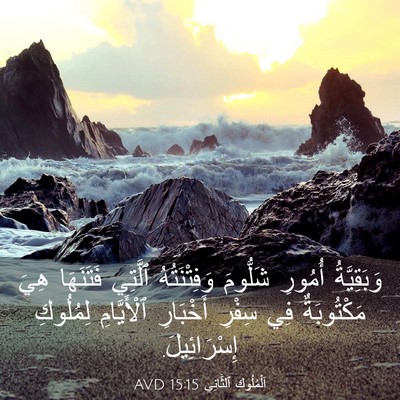 وَبَقِيَّةُ أُمُورِ شَلُّومَ وَفِتْنَتُهُ ٱلَّتِي فَتَنَهَا هِيَ
مَكْتُوبَةٌ فِي سِفْرِ أَخْبَارِ ٱلْأَيَّامِ لِمُلُوكِ
إِسْرَائِيلَ.
اَلْمُلُوكِ ٱلثَّانِي 15:15 AVD